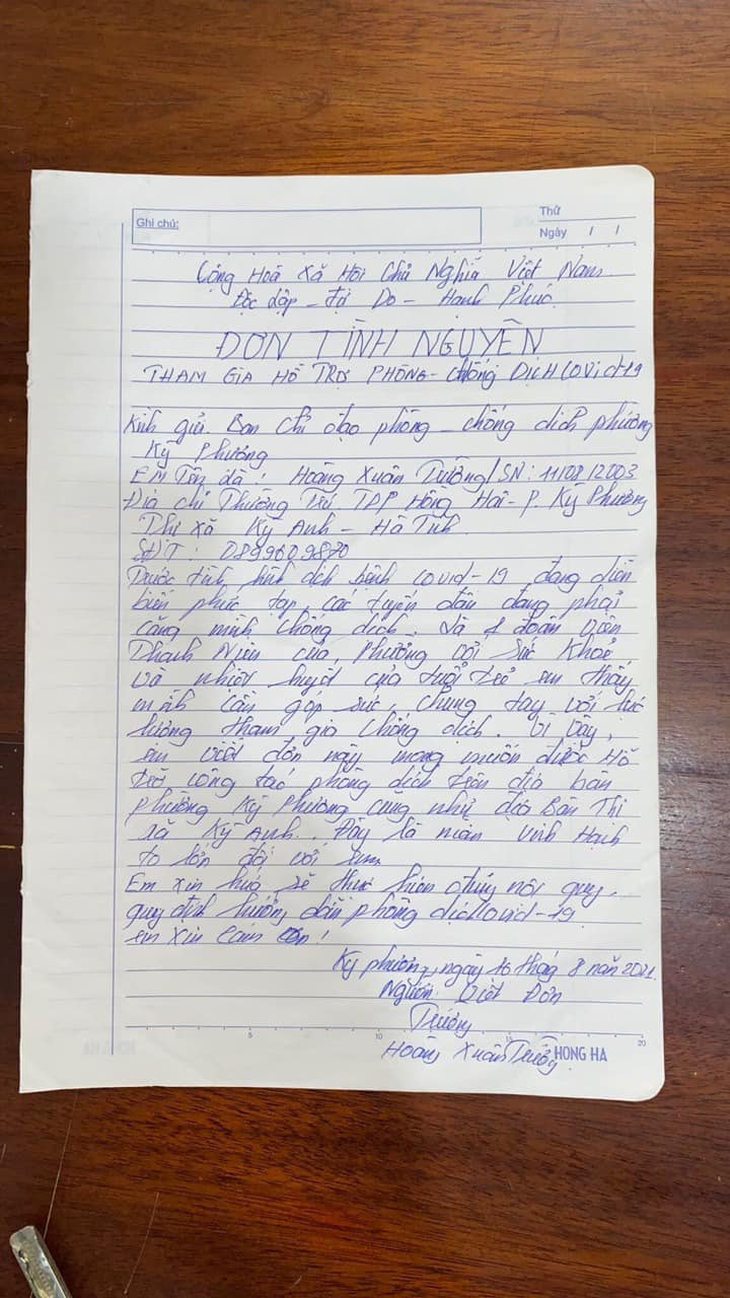 Ghi chú:
Thứ
Ngày / /
Cộng Hoà Xã Hội Chủ Nghĩa Việt Nam
Độc Lập - Tự Do - Hạnh Phúc
ĐƠN TÌNH NGUYỆN
THAM GIA HỖ TRỢ PHÒNG - CHỐNG DỊCH COVID-19
Kính gửi. Ban chỉ đạo phòng - chống dịch phường
Kỳ Phương
Em Tên là: Hoàng Xuân Trường / SN: 11/08/2003
Địa chỉ Thường Trú. TDP Hồng Hải - P. Kỳ Phương
Thị xã Kỳ Anh - Hà Tĩnh
SĐT: 0899609870
Trước tình hình dịch bệnh covid-19 đang diễn
biến phức tạp, các tuyến đầu đang phải
căng mình chống dịch. Là 1 đoàn viên
Thanh Niên của phường với sức khoẻ
và nhiệt huyết của tuổi trẻ em thấy
mình cần góp sức, chung tay với lực
lượng tham gia chống dịch. Vì vậy,
em viết đơn này mong muốn được Hỗ
trợ công tác phòng dịch trên địa bàn
phường Kỳ Phương cũng như địa Bàn Thị
xã Kỳ Anh. Đây là niềm vinh Hạnh
to lớn đối với em
Em xin hứa sẽ thực hiện đúng nội quy,
quy định hướng dẫn phòng dịch Covid-19
em xin cảm ơn!
Kỳ phương, ngày 16 tháng 8 năm 2021
Người Viết Đơn
Trường
Hoàng Xuân Trường
5 10 15 20
HONG HA